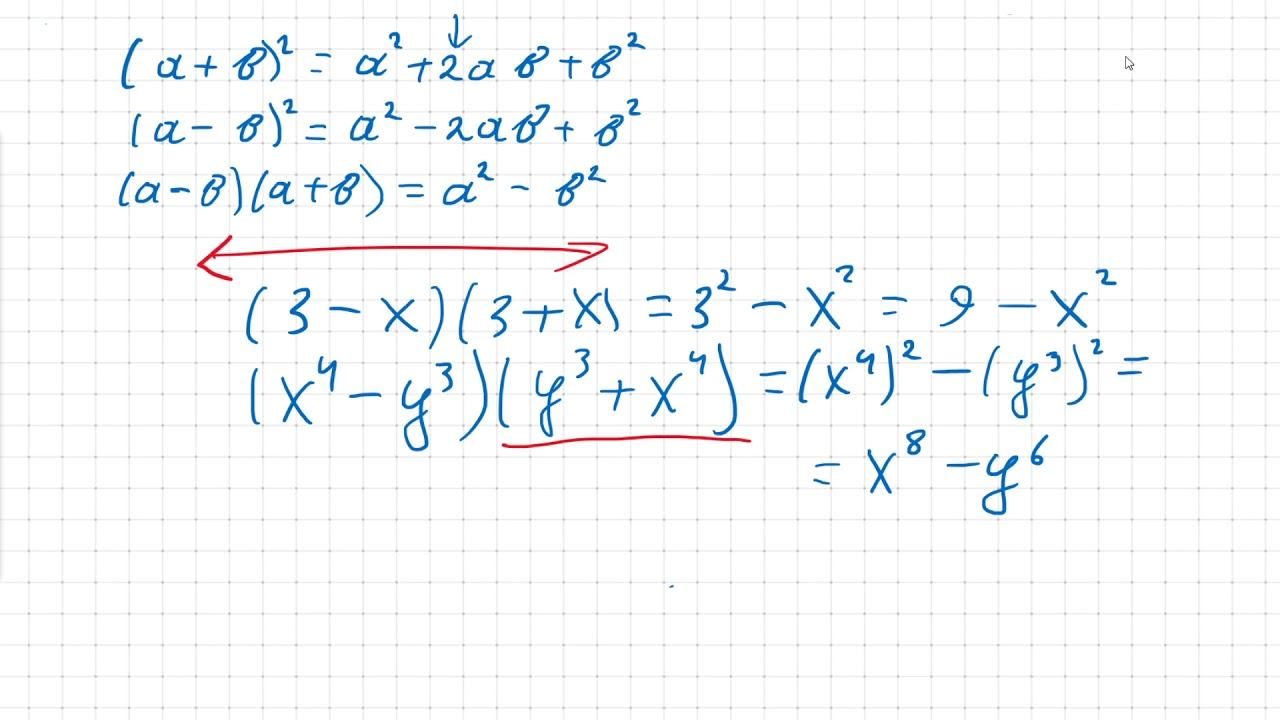 (a + b)² = a² + 2ab + b²
(a - b)² = a² - 2ab + b²
(a - b)(a + b) = a² - b²
(3 - x)(3 + x) = 3² - x² = 9 - x²
(x⁴ - y³)(y³ + x⁴) = (x⁴)² - (y³)² =
= x⁸ - y⁶